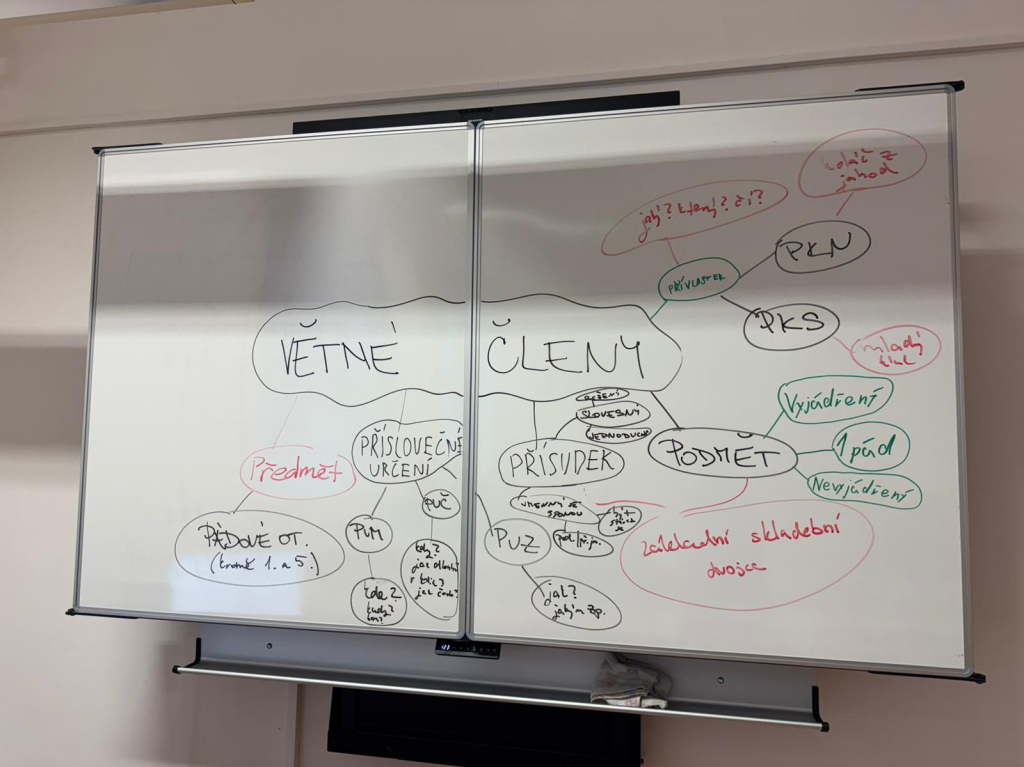 VĚTNÉ ČLENY
PŘÍVLASTEK
jaký? který? čí?
PKN
koláč z
jahod
PKS
mladý
kluk
PODMĚT
Vyjádřený
1 pád
Nevyjádřený
základní skladební
dvojce
PŘÍSUDEK
SLOVESNÝ
JEDNODUCHÝ
JMENNÝ SE
SPONOU
být
PŘÍSLOVEČNÉ
URČENÍ
PUM
kde?
kudy?
PUČ
kdy?
jak dlouho?
jak často?
PUZ
jak?
jakým zp.
Předmět
PÁDOVÉ OT.
(kromě 1. a 5.)